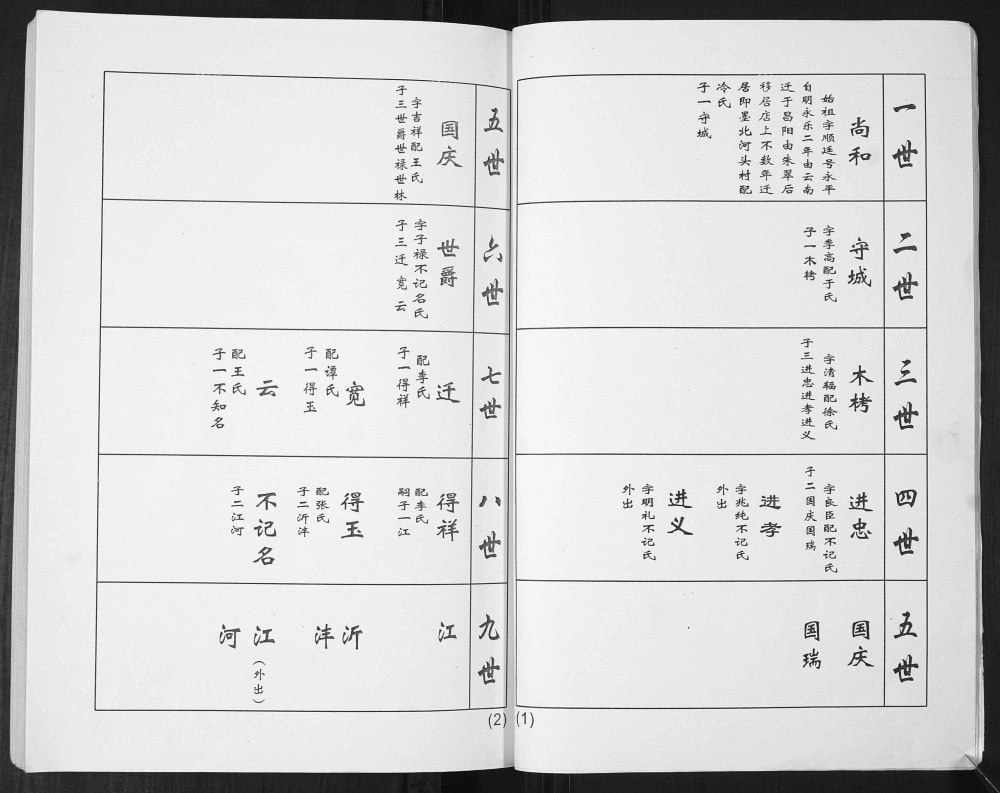 一世
尚和
始祖字顺廷号永平
自明永乐二年由云南
迁于昌阳由朱翠后
移居店上不数年迁
居即墨北河头村配
冷氏
子一守城
二世
守城
字季高配于氏
子一木栲
三世
木栲
字清辐配徐氏
子三进忠进孝进义
四世
进忠
字良臣配不记氏
子二国庆国瑞
进孝
字兆纯不记氏
外出
进义
字明礼不记氏
外出
五世
国庆
国瑞
(1)
五世
国庆
字吉祥配王氏
子三世爵世禄世林
六世
世爵
字子禄不记名氏
子三迁宽云
七世
迁
配李氏
子一得祥
宽
配谭氏
子一得玉
云
配王氏
子一不知名
八世
得祥
配李氏
嗣子一江
得玉
配张氏
子二沂沣
不记名
子二江河
九世
江
沂
沣
江
(外出)
河
(2)